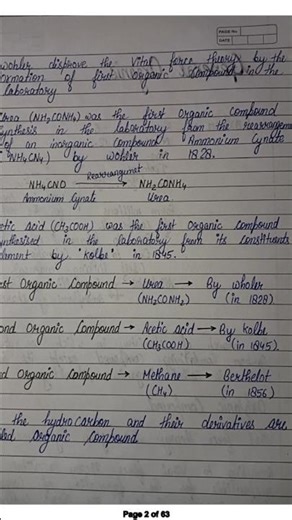 PAGE No.
DATE
wohler disprove the Vital force theory by the
formation of first Organic Compound in the
laboratory
Urea (NH2CONH2) was the first organic compound
synthesis in the laboratory from the rearrangement
of an inorganic compound Ammonium Cynate
NH4CN4) by wohler in 1828.
Rearrangment
NH4CNO → NH2CONH4
Ammonium Cynate Urea
etic acid (CH3COOH) was the first organic compound
nthesised in the laboratory from its constituents
lement by "kolbe" in 1845.
rst Organic Compound → Urea → By wholer
(NH2CONH2) (in 1828)
ond Organic Compound → Acetic acid → By kolbe
(CH3COOH) (in 1845).
d Organic Compound → Methane → Berthelot
(CH4) (in 1856)
the hydrocarbon and their derivatives are
lled organic compound
Page 2 of 63